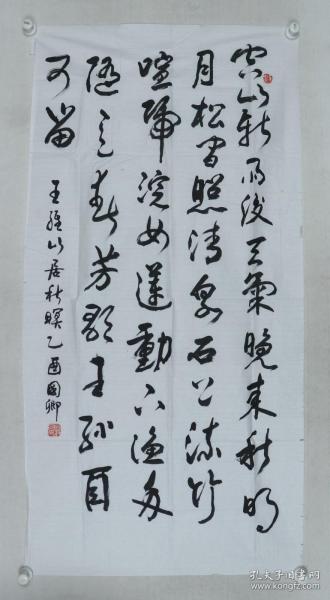 空山新雨後天氣晚来秋明
月松间照清泉石上流竹
喧归浣女蓮動下渔舟
随意春芳歇王孙自
可留
王维山居秋暝乙酉國卿
孔夫子旧书网